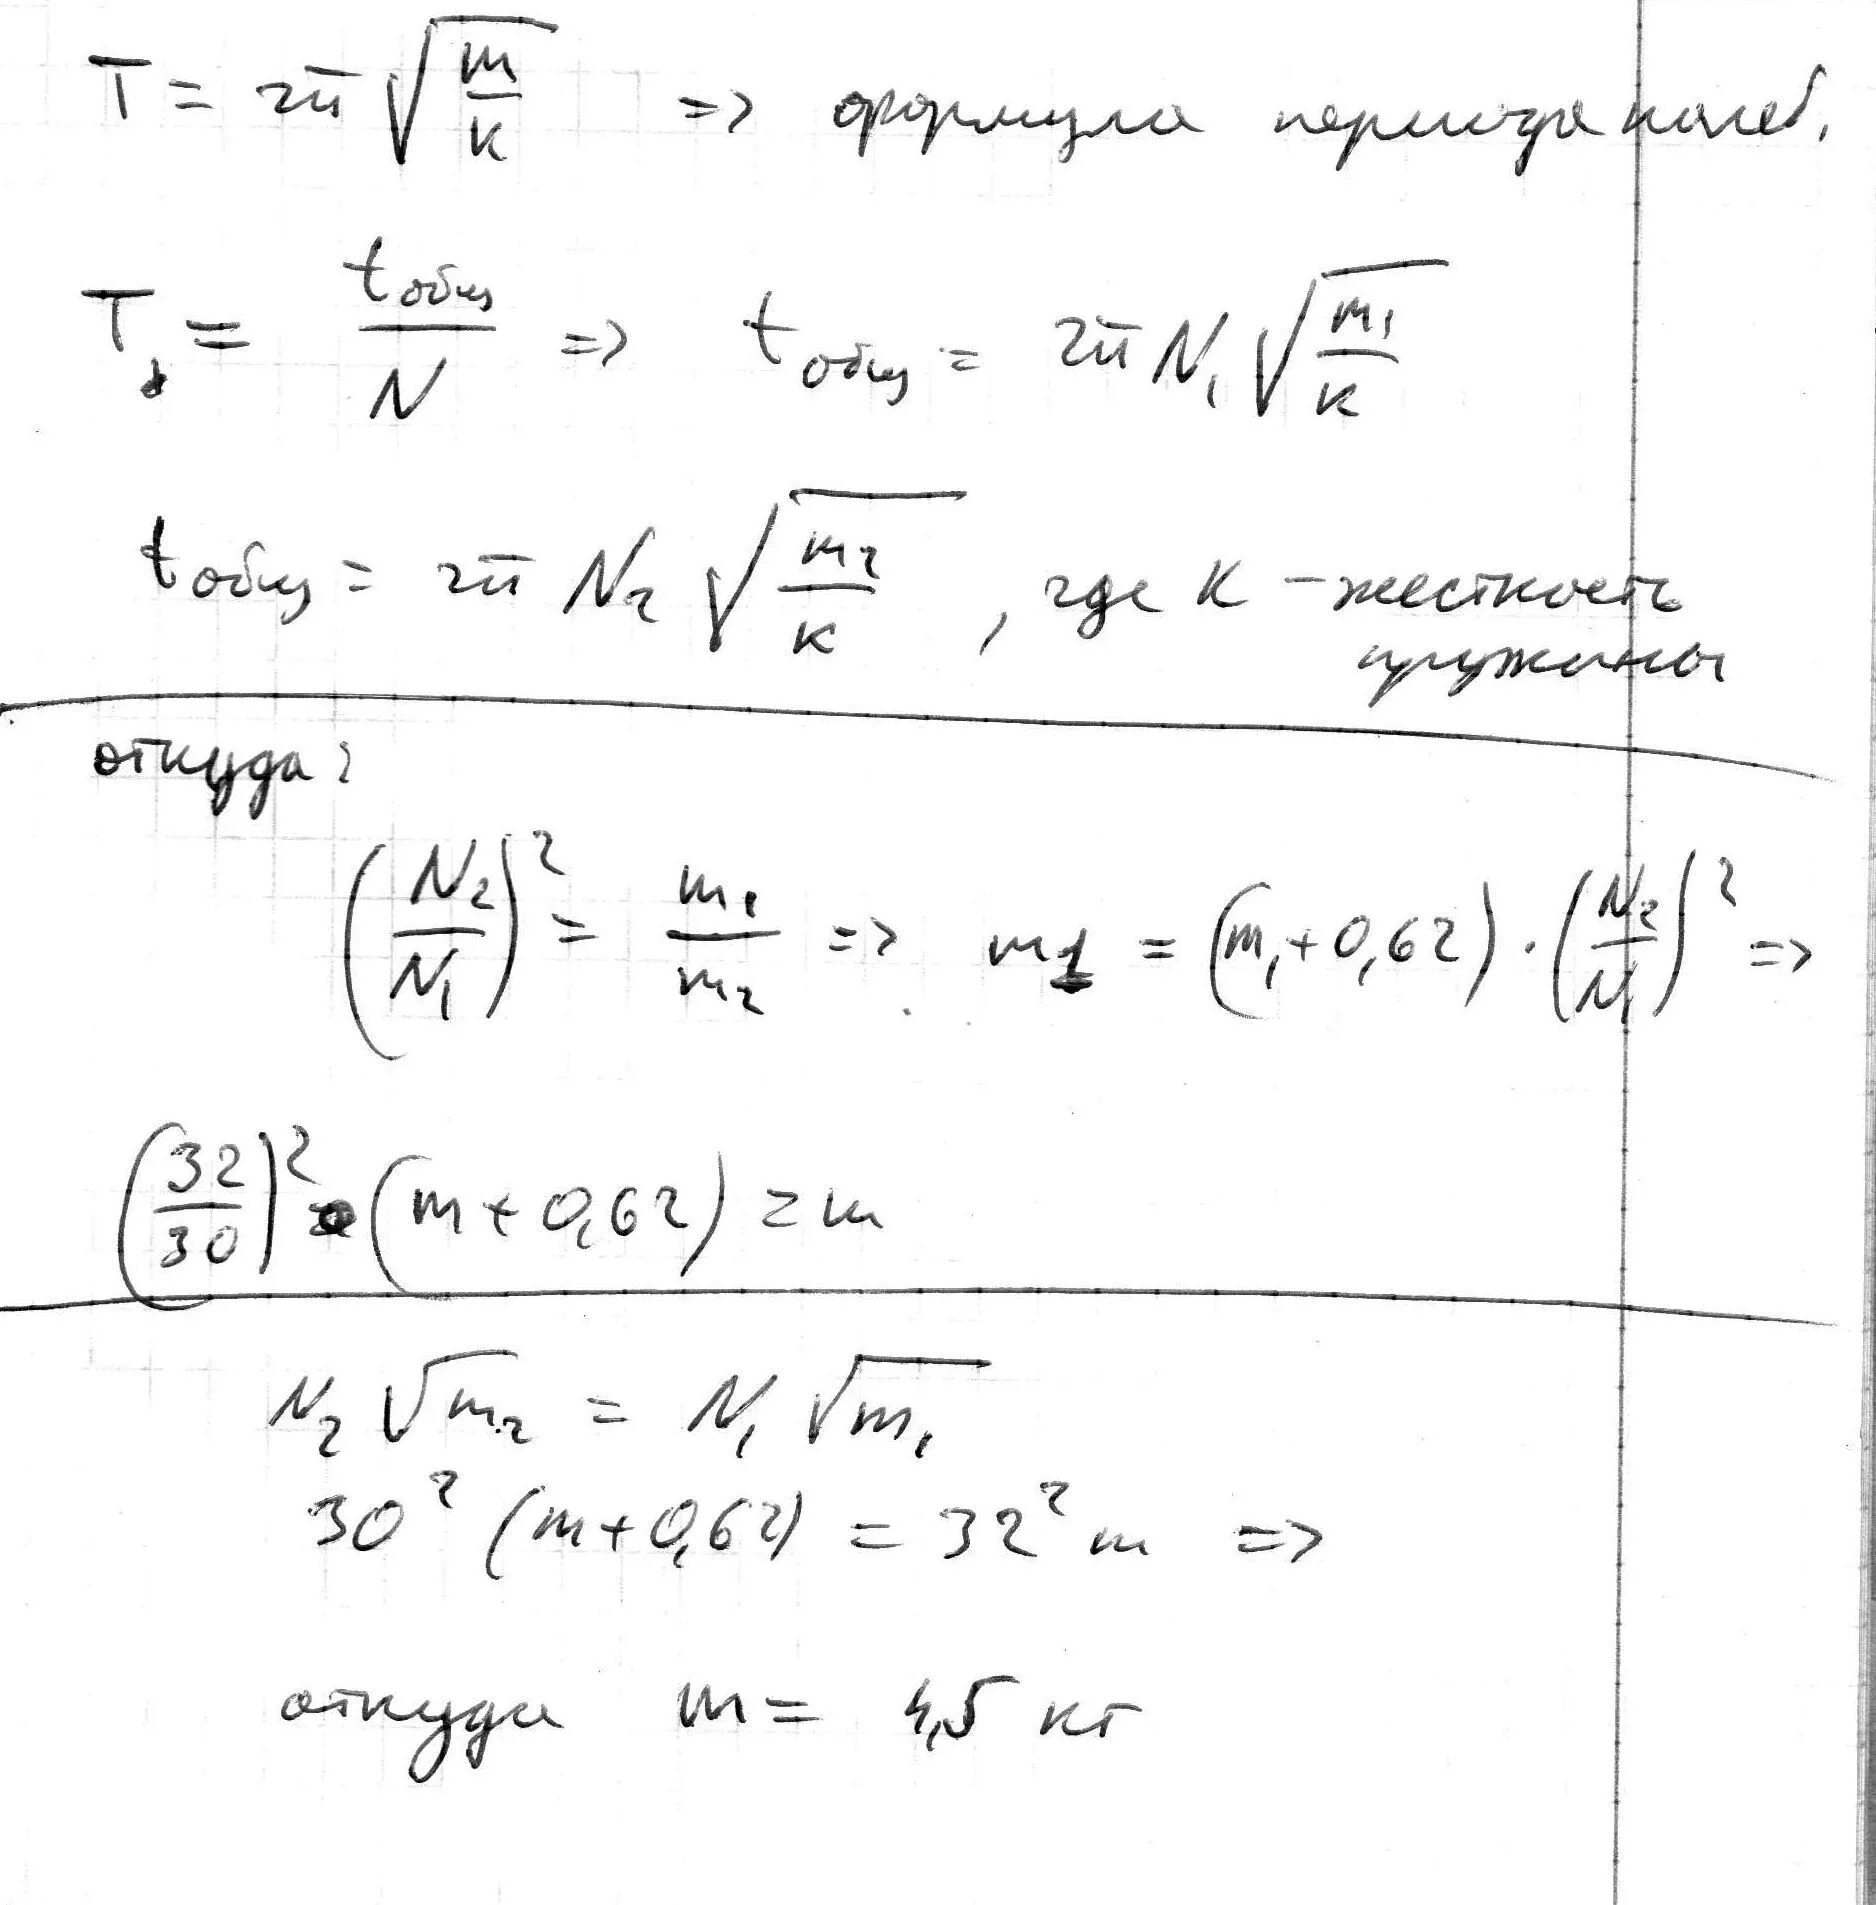 T = 2π √(m/к) => формула периода колеб.
T = tобщ/N => tобщ = 2π N₁ √(m₁/к)
tобщ = 2π N₂ √(m₂/к), где к – жесткость
пружины
откуда:
(N₂/N₁)² = m₁/m₂ => m1 = (m₁+0,62)·(N₂/N₁)² =>
(32/30)² (m+0,62) = m
N₂ √m₂ = N₁ √m₁
30² (m+0,62) = 32² m =>
откуда m = 4,5 кг